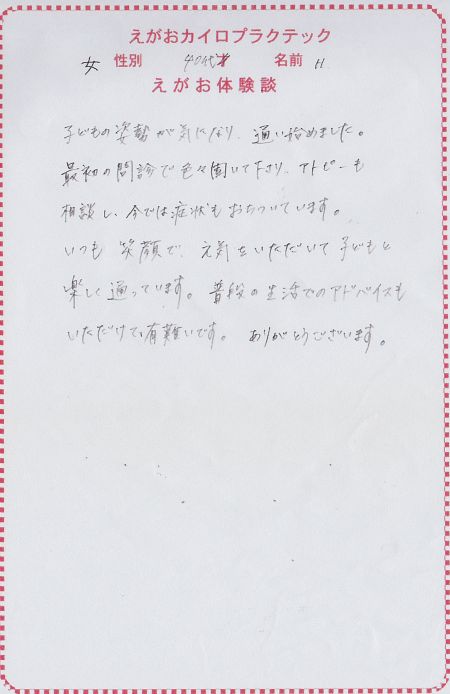 えがおカイロプラクテック
女 性別 40代 名前 H.
えがお体験談
子どもの姿勢が気になり、通い始めました。
最初の問診で色々聞いて下さり、アトピーも
相談し、今では症状もおちついています。
いつも笑顔で、元気をいただいて子どもと
楽しく通っています。普段の生活でのアドバイスも
いただけて、有難いです。ありがとうございます。